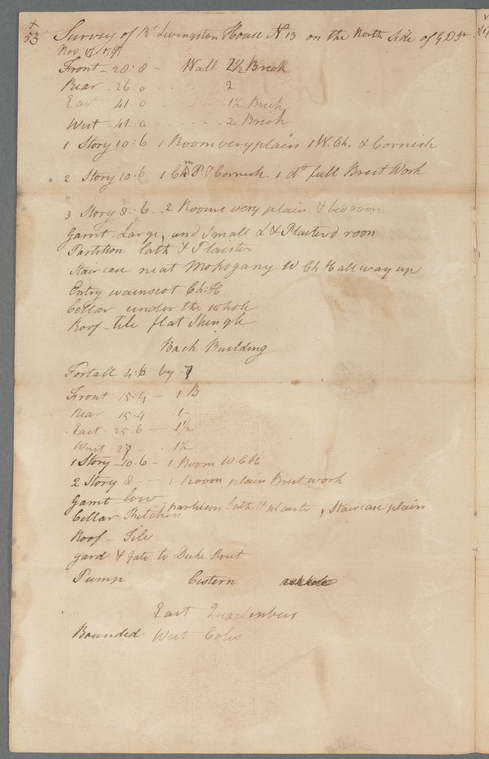 53
Survey of Rt Livingston House No 13 on the North Side of
Nov
Front - 28.8 - Wall 2½ Brick
Rear 26.0 2
East 41.0 1½ Brick
West 41.0 2 Brick
1 Story 10.6 1 Room very plain 1 W. Ch. & Cornish
2 Story 10.6 1 Cornish 1 do full Brest Work
3 Story 8.6 2 Rooms very plain & bed room
Garrit Large, and Small L & Plasterd room
Partition lath & Plaister
Staircase neat Mohogany W Ch H all way up
Entry wainscot Ch. H
Cellar under the whole
Roof - tile flat Shingle
Back Building
4.6 by 7
Front 15.4 - 1 B
Rear 15.4 1 -
East 25.6 - 1½
West 27 - 1½
1 Story 10.6 - 1 Room W C H
2 Story 8 - 1 Room plain Brest work
Garrit low
Cellar Kitchin partision lath & Plaister, Staircase plain
Roof - Tile
yard & gate to Duke Street
Pump Cistern
East
Bounded West